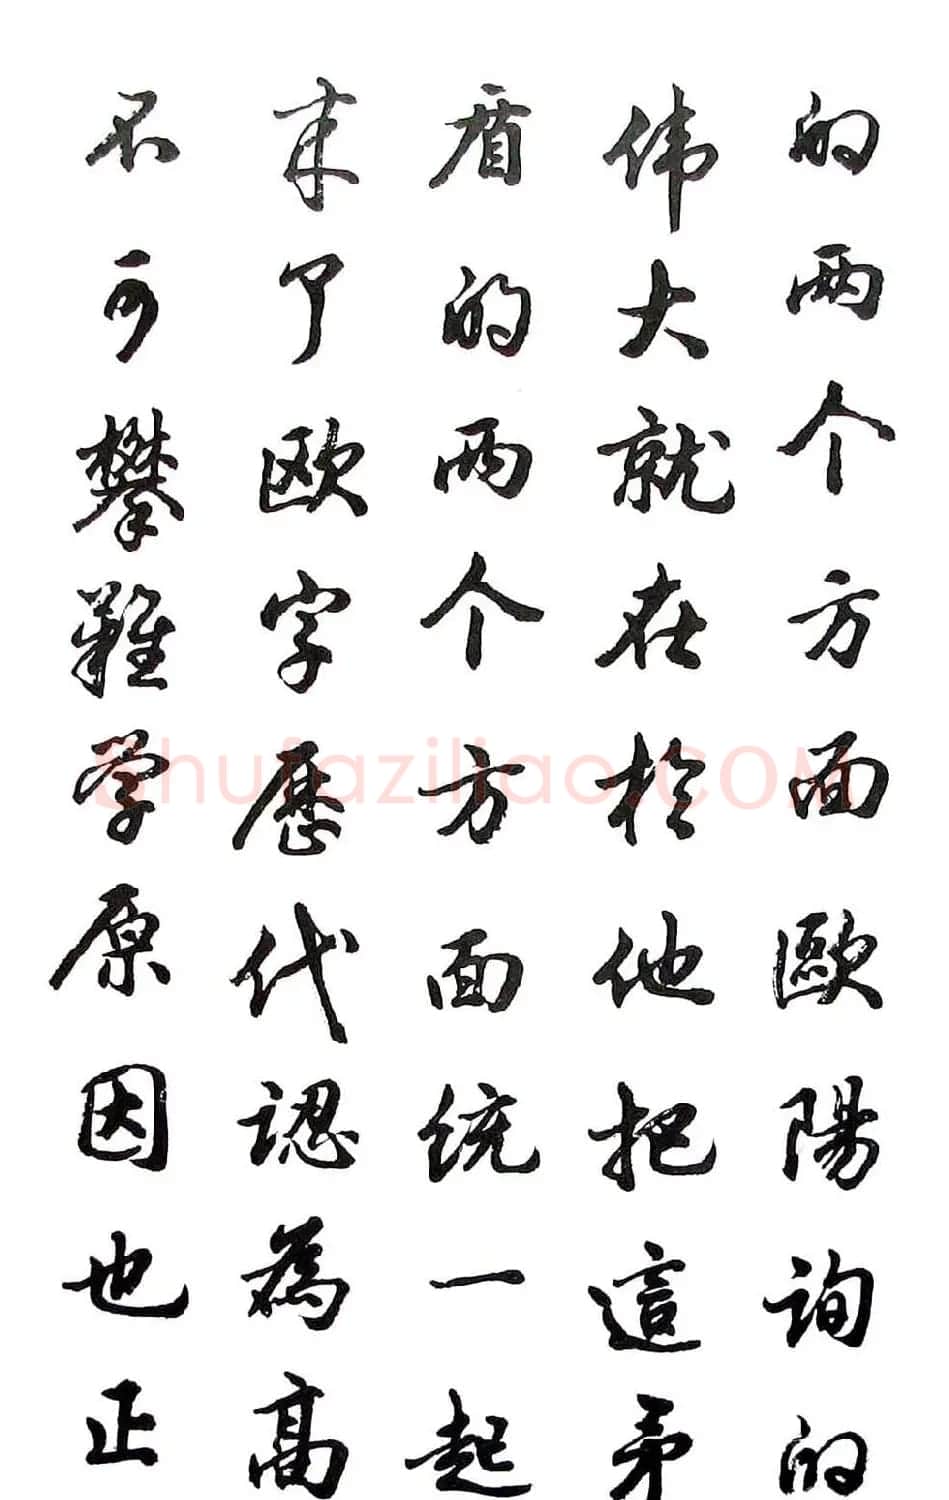 的两个方面歐陽询的
伟大就在於他把這矛
盾的两个方面统一起
来了欧字歷代認為高
不可攀難学原因也正
Shufaziliao.COM